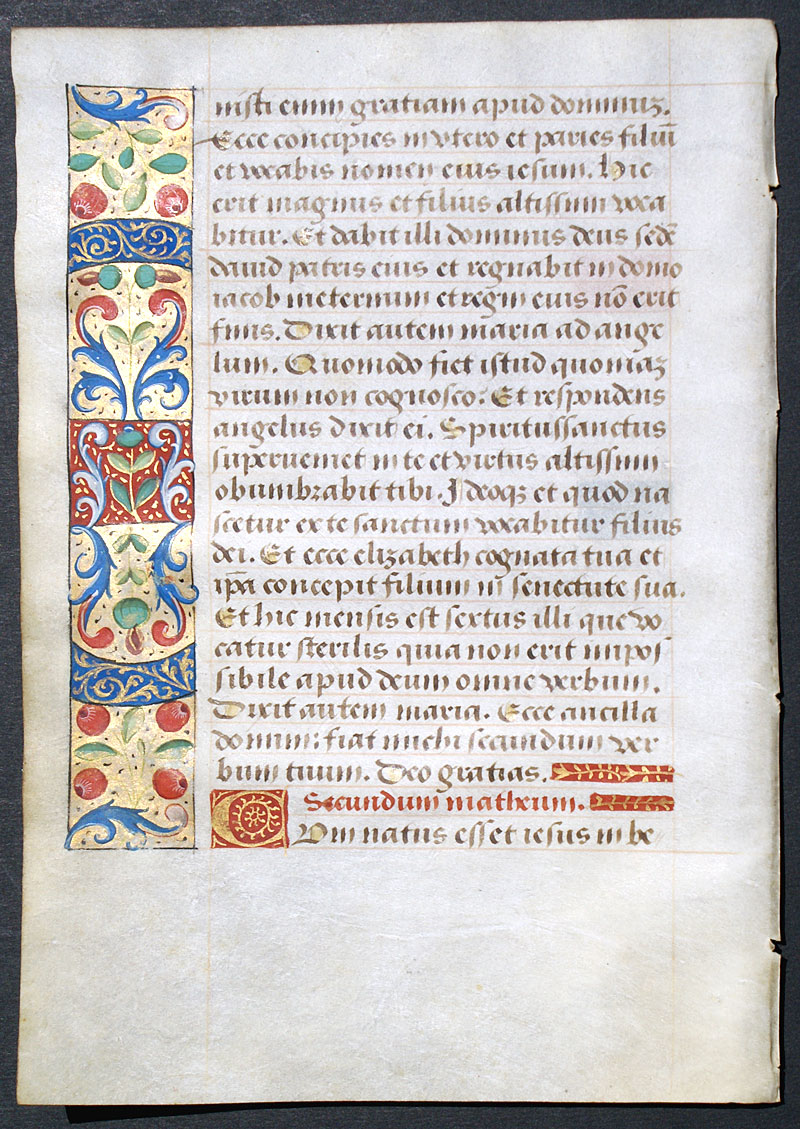 nisti enim gratiam apud dominuz.
Ecce concipies in vtero et paries filiū
et vocabis nomen eius iesum. Hic
erit magnus et filius altissimi voca
bitur. Et dabit illi dominus deus sedē
dauid patris eius et regnabit in domo
iacob in eternum et regni eius nō erit
finis. Dixit autem maria ad ange
lum. Quomodo fiet istud quoniaz
virum non cognosco. Et respondens
angelus dixit ei. Spiritussanctus
superueniet in te et virtus altissimi
obumbrabit tibi. Ideoqz et quod na
scetur ex te sanctum vocabitur filius
dei. Et ecce elizabeth cognata tua et
ip̄a concepit filium in senectute sua.
Et hic mensis est sextus illi que vo
catur sterilis quia non erit impos
sibile apud deum omne verbum.
Dixit autem maria. Ecce ancilla
domini: fiat michi secundum ver
bum tuum. Deo gratias.
Secundum matheum.
CVm natus esset iesus in be